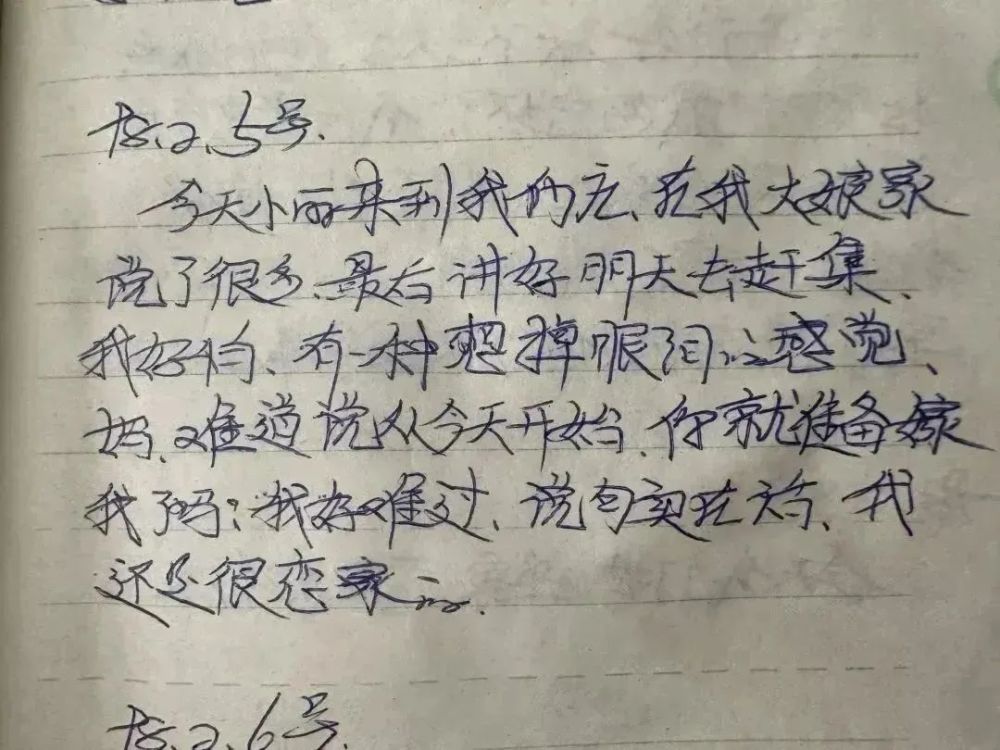 78.2.5号.
今天小丽来到我们庄、在我大娘家
说了很多、最后讲好明天去赶集、
我好怕、有一种想掉眼泪的感觉、
妈、难道说从今天开始、你就准备嫁
我了吗：我好难过、说句实在话、我
还是很恋家的.
78.2.6号.